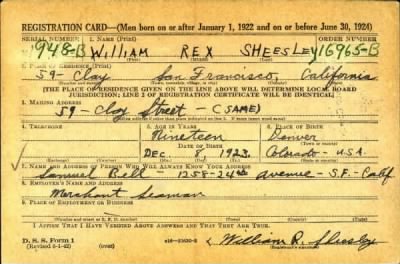 REGISTRATION CARD—(Men born on or after January 1, 1922 and on or before June 30, 1924)
SERIAL NUMBER 1. NAME (Print) ORDER NUMBER
948-B WILLIAM REX SHEESLEY 16965-B
(First) (Middle) (Last)
2. PLACE OF RESIDENCE (Print)
59 - Clay San Francisco, California
[THE PLACE OF RESIDENCE GIVEN ON THE LINE ABOVE WILL DETERMINE LOCAL BOARD
JURISDICTION; LINE 2 OF REGISTRATION CERTIFICATE WILL BE IDENTICAL]
3. MAILING ADDRESS
59 - Clay Street - (SAME)
4. TELEPHONE 5. AGE IN YEARS 6. PLACE OF BIRTH
Nineteen Denver
DATE OF BIRTH (Town or county)
DEC 8 1923 Colorado - U.S.A.
(Exchange) (Number) (Mo.) (Day) (Yr.) (State or country)
7. NAME AND ADDRESS OF PERSON WHO WILL ALWAYS KNOW YOUR ADDRESS
Samuel Bell - 1258-24th avenue - S.F. - Calif
8. EMPLOYER'S NAME AND ADDRESS
Merchant Seaman
9. PLACE OF EMPLOYMENT OR BUSINESS
I AFFIRM THAT I HAVE VERIFIED ABOVE ANSWERS AND THAT THEY ARE TRUE.
D. S. S. Form 1 (over)
William R. Sheesley
(Registrant's signature)